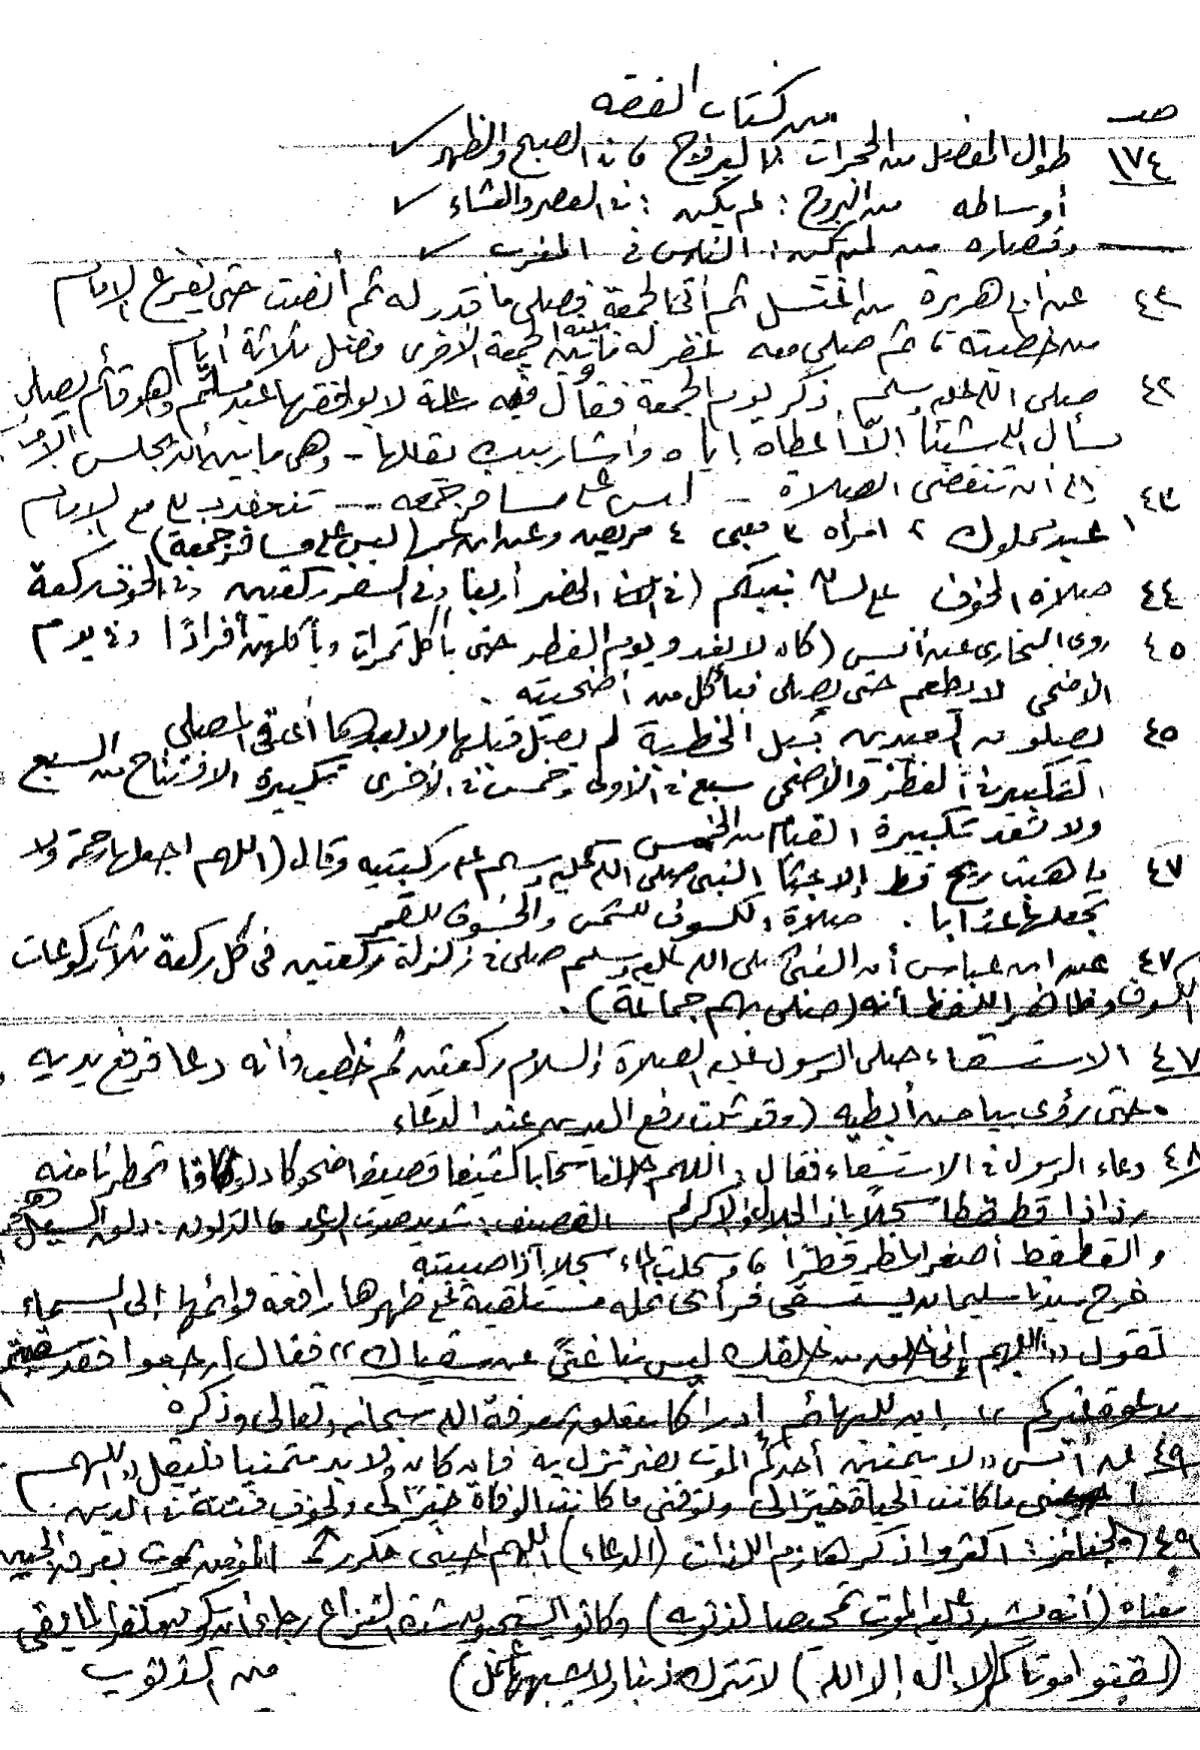 من كتاب الفقه
صـ
١٧٤ طوال المفصل من الحجرات : البروج فى الصبح والظهر
أوساطه من البروج : لم يكن : فى العصر والعشاء
وقصاره من لم يكن : الناس فى المغرب
٤٢ عن ابى هريرة من اغتسل ثم أتى الجمعة فصلى ما قدر له ثم أنصت حتى يفرغ الإمام
من خطبته ثم صلى معه غفر له ما بينه الجمعة الأخرى وفضل ثلاثة أيام
٤٢ صلى الله عليه وسلم ذكر يوم الجمعة فقال فيه ساعة لا يوافقها عبد مسلم وهو قائم يصلى
يسأل الله شيئا إلا أعطاه إياه وأشار بيده يقللها - وهى ما بين أن يجلس الإمام
إلى أن تنقضى الصلاة - ليس على مسافر جمعه --- تنعقد مع الإمام
٤٣ ١ عبد مملوك ٢ امرأه ٣ صبى ٤ مريض وعن ابن عمر (ليس على مسافر جمعة)
٤٤ صلاة الخوف على لسان نبيكم (فى الحضر أربعا وفى السفر ركعتين وفى الخوف ركعة
٤٥ روى البخارى عن أنس (كان لا يغدو يوم الفطر حتى يأكل تمرات ويأكلهن أفرادًا وفى يوم
الأضحى لا يطعم حتى يصلى فيأكل من أضحيته .
٤٥ يصلون العيدين قبل الخطبة لم يصل قبلها ولا بعدها أى فى المصلى
التكبير فى الفطر والأضحى سبع فى الأولى وخمس فى الأخرى تكبيرة الافتتاح من السبع
ولا تعد تكبيرة القيام من الخمس
٤٧ ما هبت ريح قط إلا جثا النبى صلى الله عليه وسلم على ركبتيه وقال (اللهم اجعلها رحمة ولا
تجعلها عذابا . صلاة الكسوف للشمس والخسوف للقمر
٤٧ عن ابن عباس أن النبى صلى الله عليه وسلم صلى فى زلزلة ركعتين فى كل ركعة ثلاث ركوعات
الكسوف وظاهر اللفظ أنه (صلى بهم جماعة) .
٤٧ الاستسقاء صلى الرسول عليه الصلاة والسلام ركعتين ثم خطب وأنه دعا فرفع يديه
حتى رؤى بياض أبطيه (وقد ثبت رفع اليدين عند الدعاء
٤٨ دعاء الرسول فى الاستسقاء فقال اللهم جللنا سحابا كثيفا قصيفا ضحوكا دلوقا تمطرنا منه
رذاذا قطقطا سجلًا ياذا الجلال والإكرام القصيف : شديد صوت الرعد
والقطقط أصغر المطر قطرًا وسجلت الماء سجلا إذا صببته
خرج سيدنا سليمان يستسقى فرأى نملة مستلقية على ظهرها رافعة قوائمها إلى السماء
تقول اللهم إنى خلق من خلقك ليس بنا غنىً عن سقياك فقال ارجعوا فقد سقيتم
بدعوة غيركم ،، إن للبهائم إدراكا يتعلق بمعرفة الله سبحانه وتعالى وذكره
٤٩ عن أنس لا يتمنين أحدكم الموت لضر نزل به فإن كان ولا بد متمنيا فليقل اللهم
أحينى ما كانت الحياة خيرًا لى وتوفنى ما كانت الوفاة خيرًا لى ولخوف فتنة فى الدين
٤٩ الجنائز : أكثروا ذكر هازم اللذات (الدعاء) اللهم أحينى المؤمن يموت بعرق الجبين
معناه (أنه يشدد عليه الموت تمحيصا لذنوبه) وكانوا يستحبون شدة النزاع رجاء أن يكون مكفرا لما بقى
من الذنوب
(لقنوا موتاكم لا إله إلا الله) لا تترك ذنبا ولا يشبهها عمل)